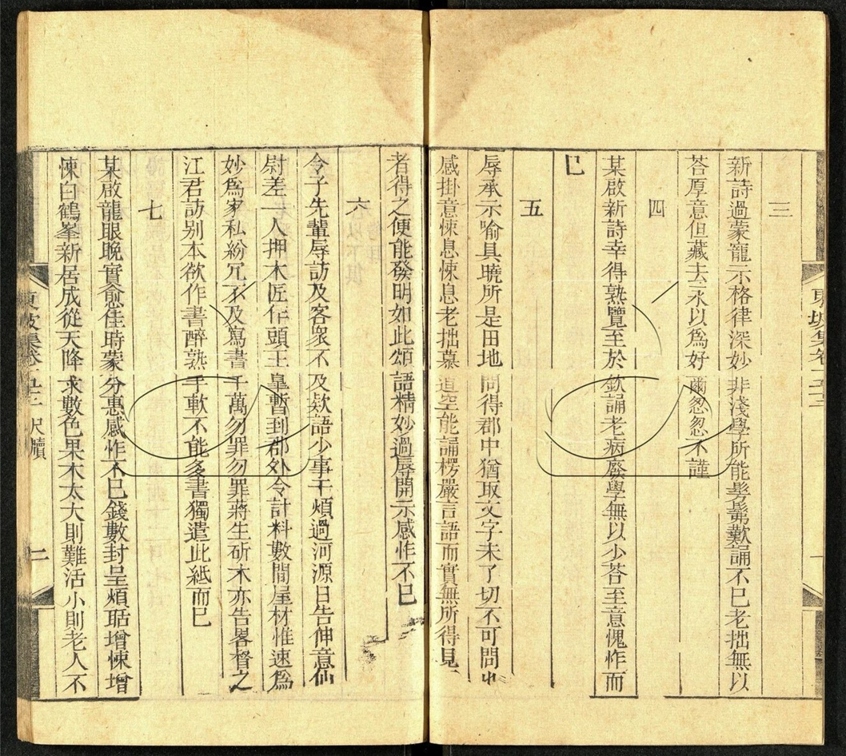 三
新詩過蒙寵示格律深妙非淺學所能髣髴歎誦不已老拙無以
荅厚意但藏去永以爲好爾怱怱不謹
四
某啟新詩幸得熟覽至於欽誦老病廢學無以少荅至意愧怍而
已
五
辱承示喻具曉所是田地問得郡中猶取文字未了切不可問也
感掛意悚息悚息老拙慕道空能誦楞嚴言語而實無所得見
者得之便能發明如此頌語精妙過辱開示感怍不已
六
令子先輩辱訪及客衆不及欵語少事干煩過河源日告伸意仙
尉差一人押木匠作頭王皐暫到郡外令計料數間屋材惟速爲
妙爲家私紛冗不及寫書千萬勿罪勿罪蔣生斫木亦告畧督之
江君訪别本欲作書醉熟手軟不能多書獨遣此紙而已
七
某啟龍眼晚實愈佳時蒙分惠感怍不已錢數封呈煩聒增悚增
悚白鶴峯新居成從天降求數色果木太大則難活小則老人不
東坡集卷
尺牘
二